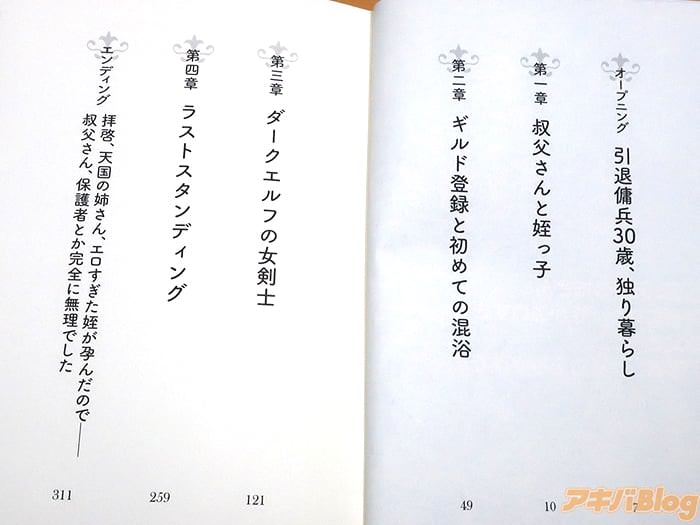 オープニング 引退傭兵30歳、独り暮らし 7
第一章 叔父さんと姪っ子 10
第二章 ギルド登録と初めての混浴 49
第三章 ダークエルフの女剣士 121
第四章 ラストスタンディング 259
エンディング 拝啓、天国の姉さん、エロすぎた姪が孕んだので――
叔父さん、保護者とか完全に無理でした 311
アキバBlog